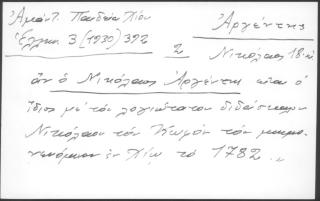 Ἀμάντ. Παιδεία Χίου
Ἀργέντης
Ἑλλην. 3 (1930) 392
2 Νικόλαος 18
ἂν ὁ Νικόλαος Ἀργέντης εἶναι ὁ
ἴδιος μὲ τὸν λογιώτατον διδάσκαλον
Νικόλαον τὸν Κωμᾶν τὸν μνημο-
νευόμενον ἐν Χίῳ τὸ 1782 ..